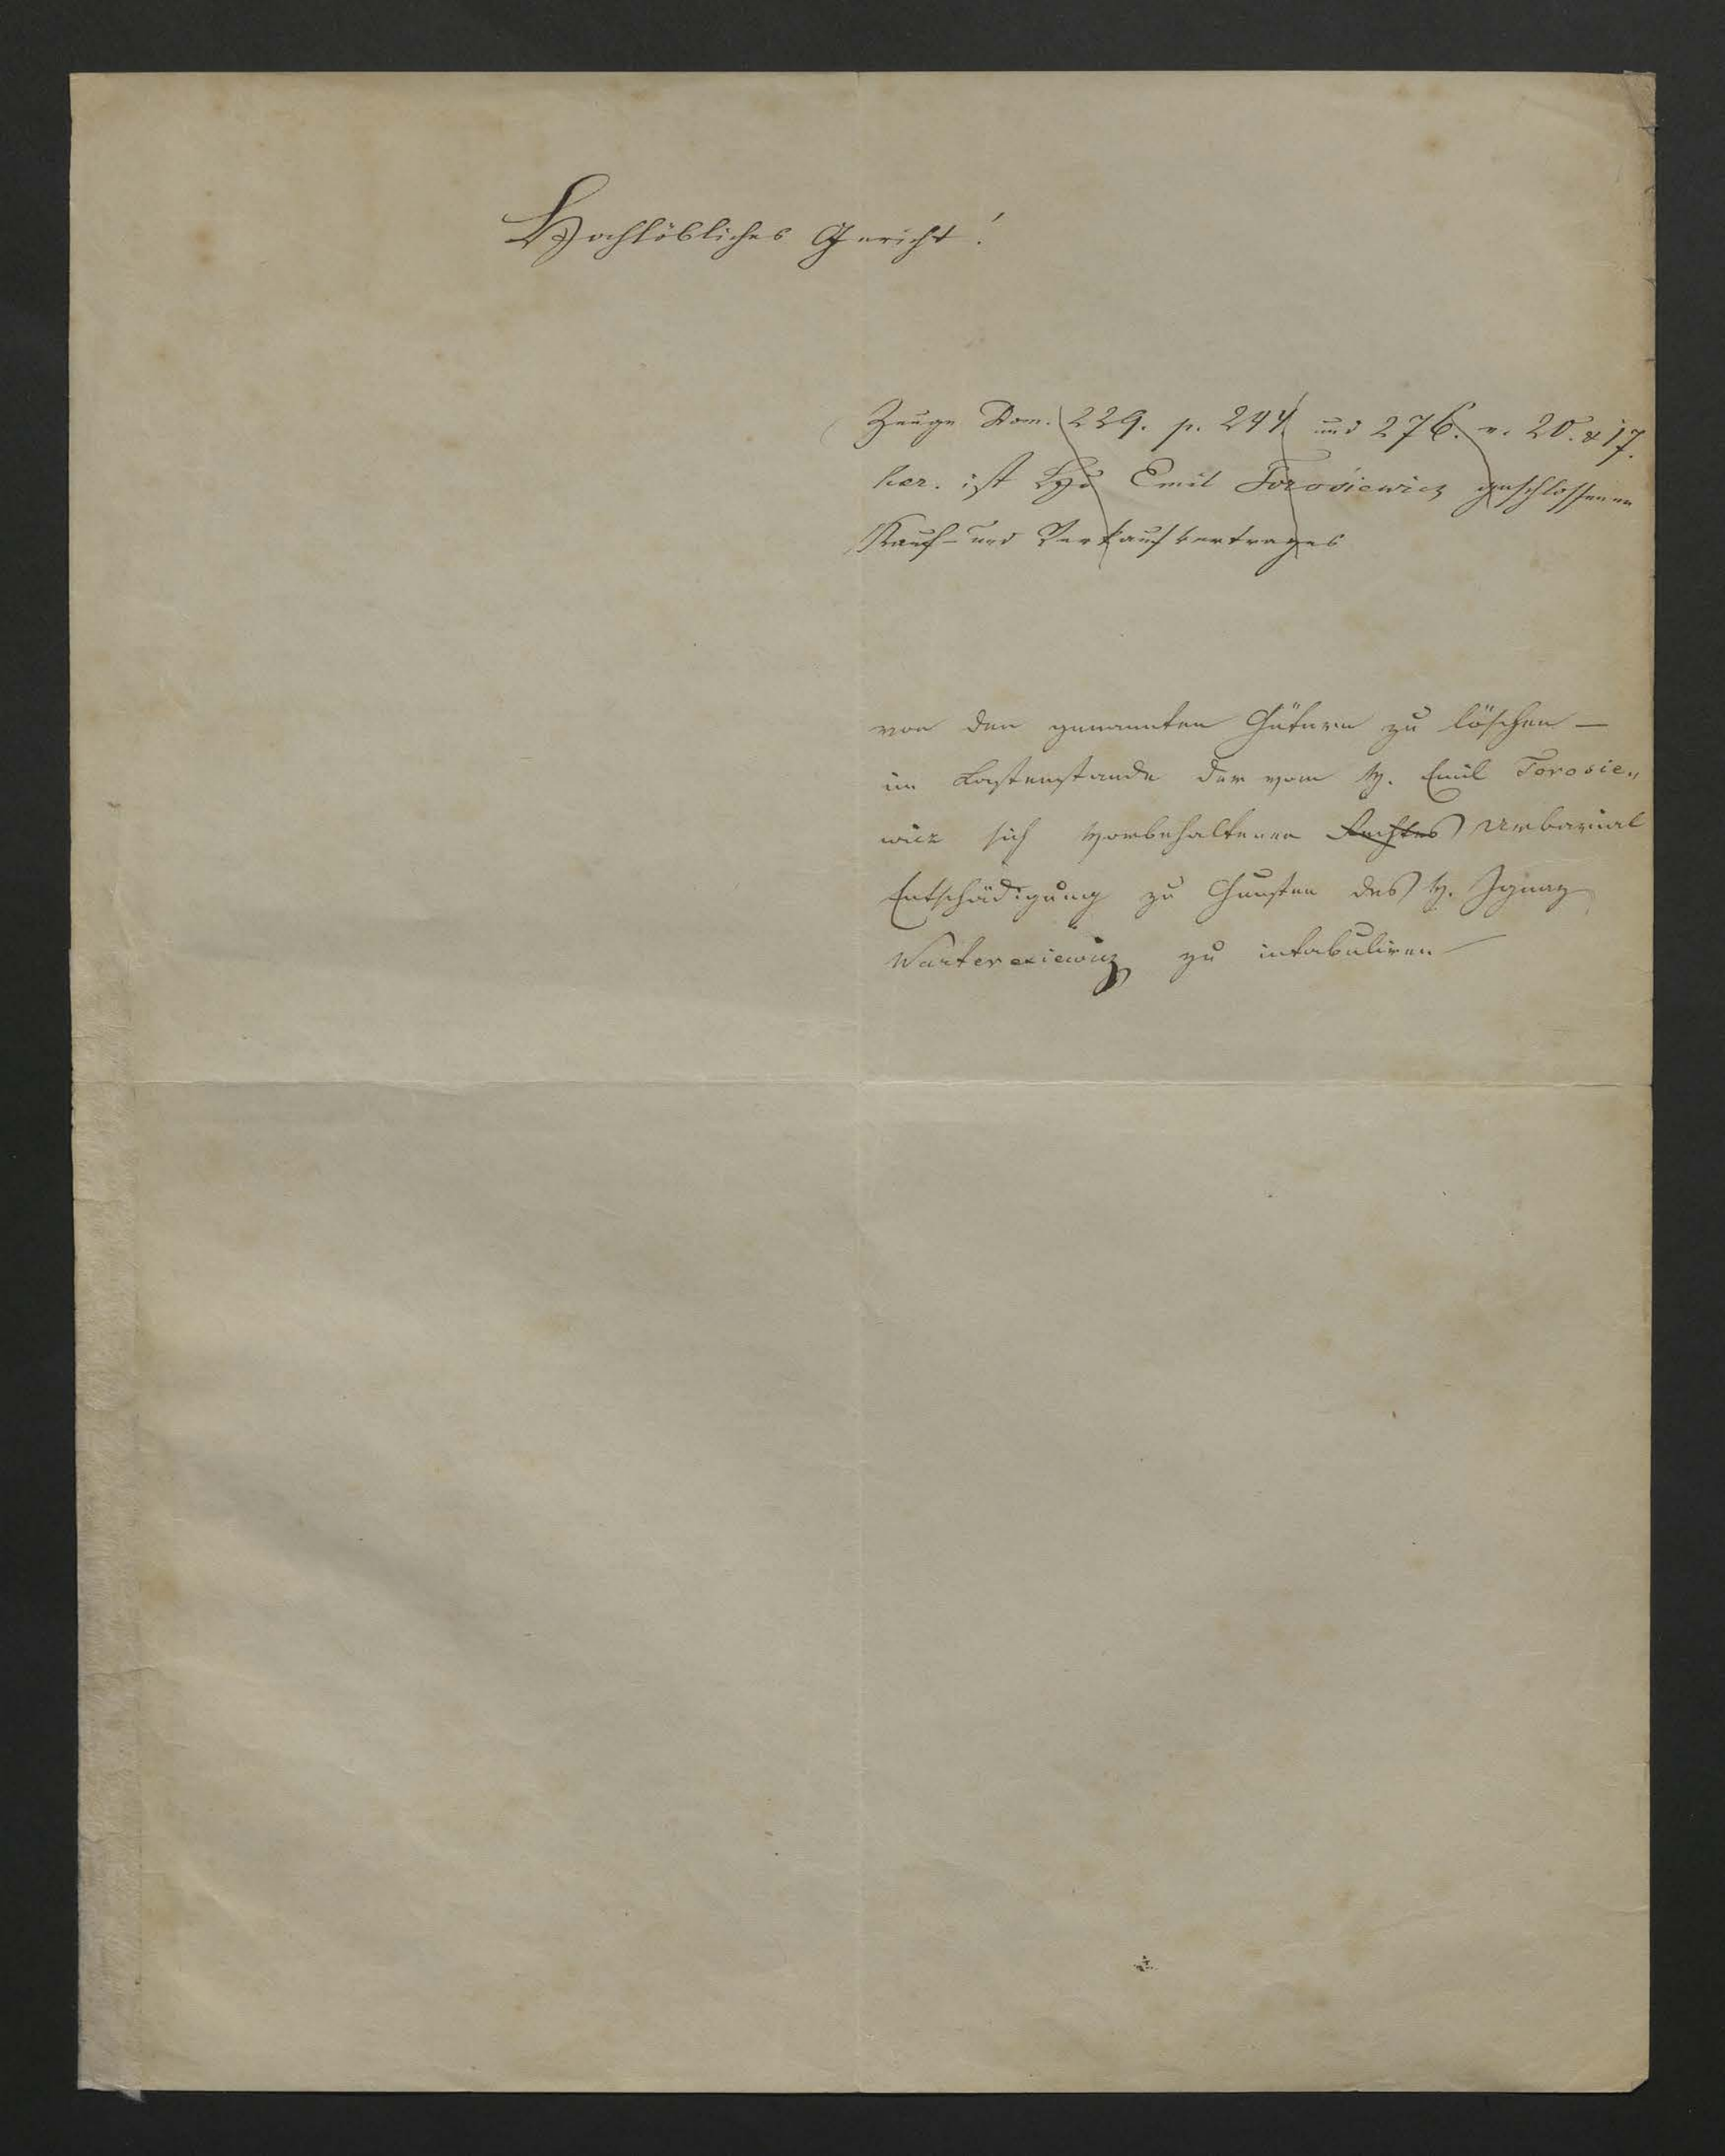 Hochlöbliches Gericht!
Zeuge Dom. 229. p. 244 und 276. n. 20. & 17.
haer. ist Emil Torosiewicz geschlossenen
Kauf- und Verkaufvertrages
von den genannten Gütern zu löschen —
im Lastenstande der vom H. Emil Torosie„
wicz sich vorbehaltenen Rechtes Urbarial
Entschädigung zu Gunsten des H. Ignaz
Warteresiewicz zu intabuliren —